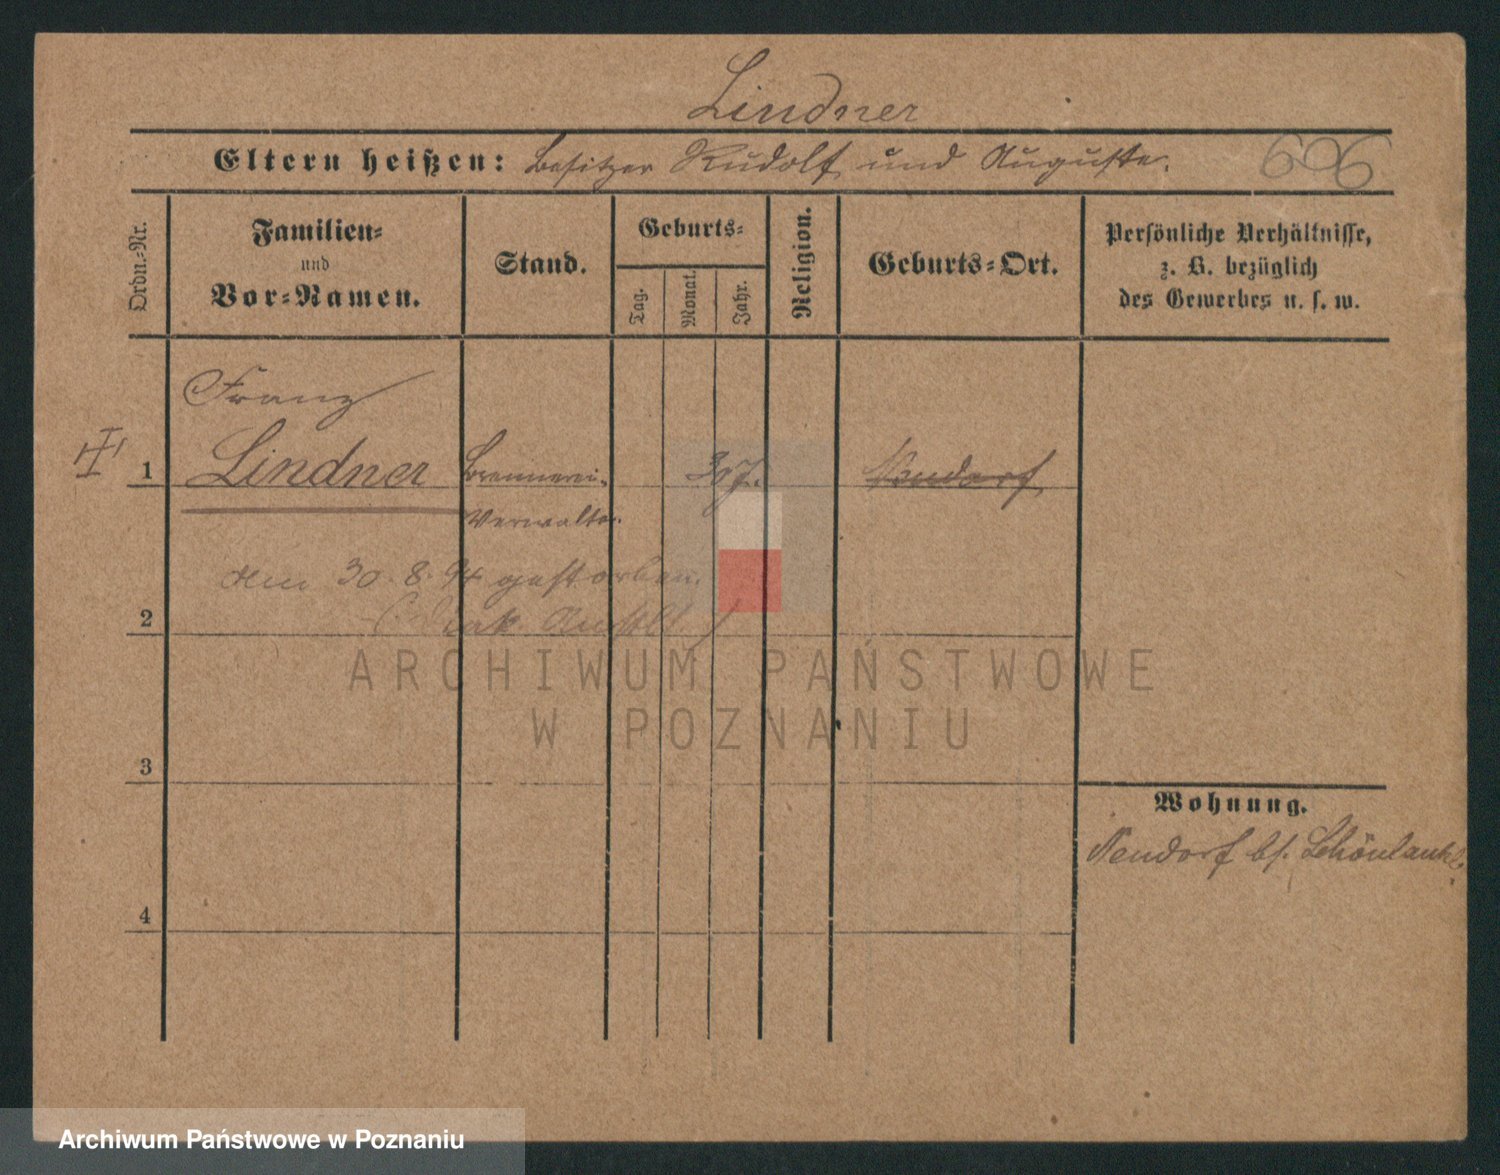 Lindner
Eltern heißen: Besitzer Rudolf und Auguste.
606
Ordn.-Nr.
Familien-
und
Vor-Namen.
Stand.
Geburts-
Tag.
Monat.
Jahr.
Religion.
Geburts-Ort.
Persönliche Verhältnisse,
z. B. bezüglich
des Gewerbes u. s. w.
Franz
1 Lindner Brennerei- 30 J. Neudorf
Verwalter.
am 30.8.94 gestorben.
2
3
4
Wohnung.
Neudorf b/. Schönlanke.
ARCHIWUM PAŃSTWOWE
W POZNANIU
Archiwum Państwowe w Poznaniu